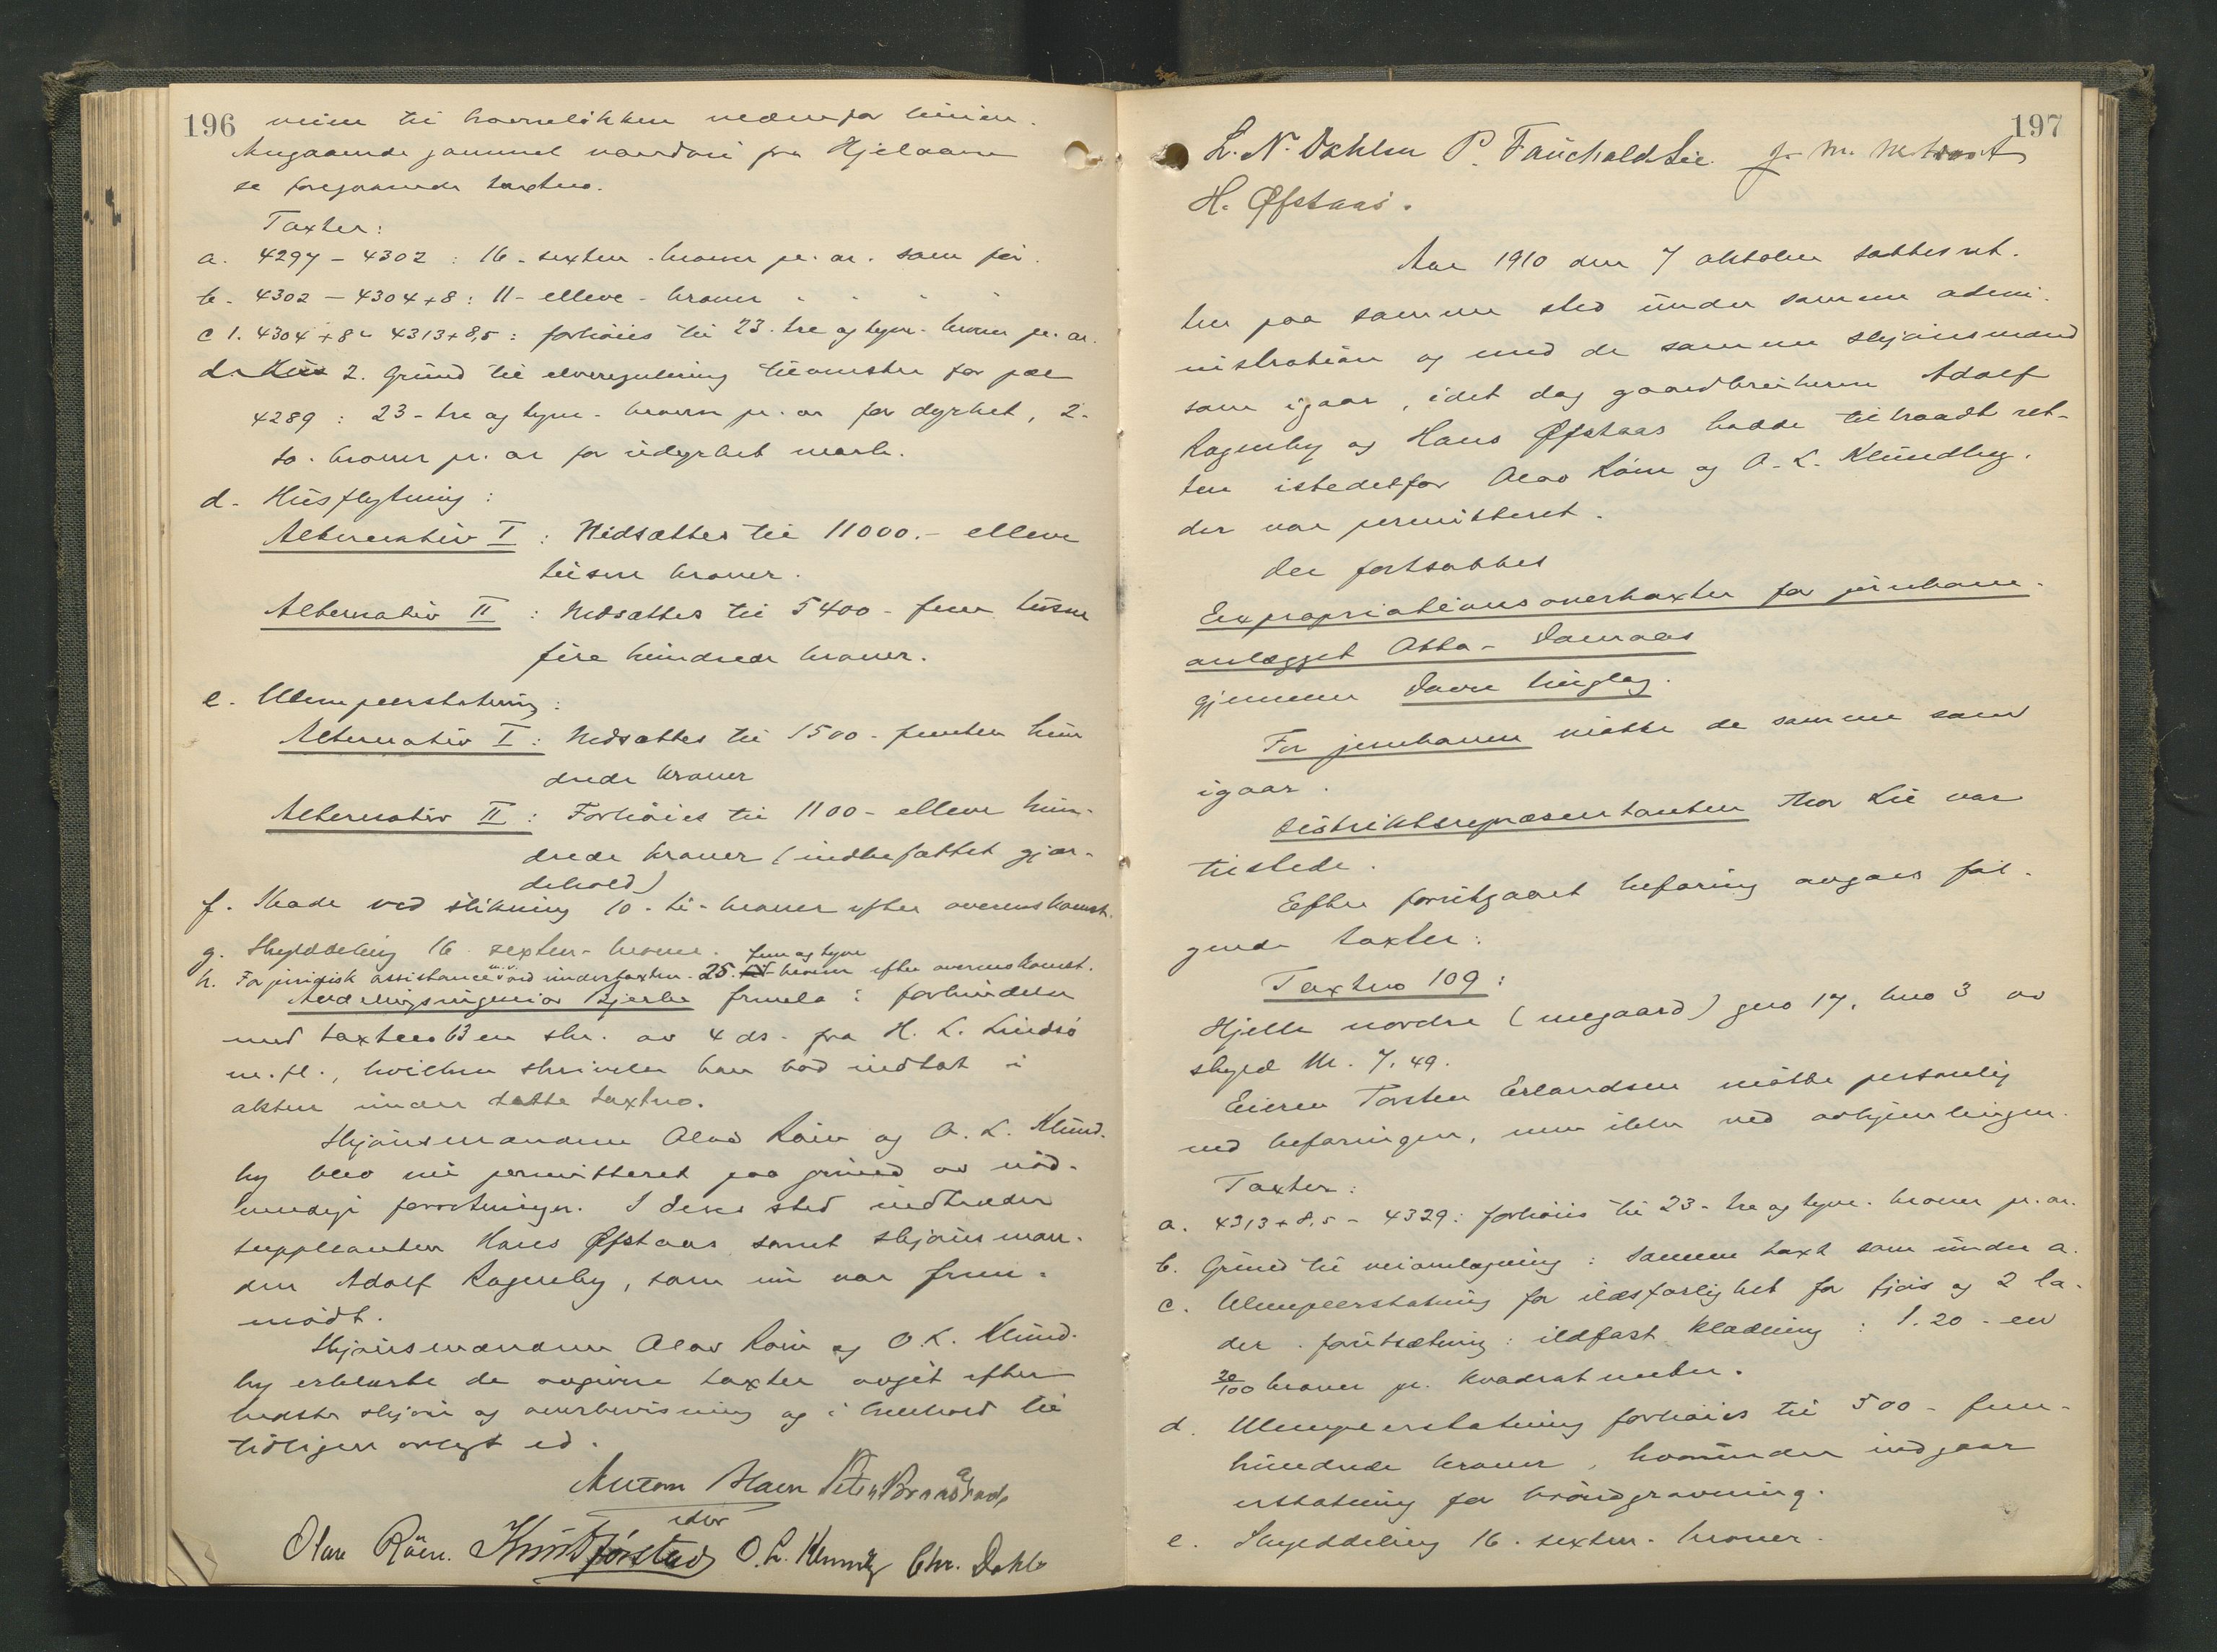 196
veien til havneløkken nedenfor linien.
Angaaende gammel vandvei fra Hjelaaen
se foregaaende taxtno.
Taxter:
a. 4297 - 4302 : 16 - sexten - kroner pr. ar. som før.
b. 4302 - 4304 + 8 : 11 - elleve - kroner " " " "
c 1. 4304 + 8 - 4313 + 8,5 : forhøies til 23 - tre og tyve - kroner pr. ar.
2. Grund til elveregulering tilvenstre for pæl
4289 : 23 - tre og tyve - kroner pr. ar for dyrket, 2 -
to - kroner pr. ar for udyrket mark.
d. Husflytning :
Alternativ I : Nedsættes til 11000.- elleve
tusen kroner.
Alternativ II : Nedsættes til 5400 - fem tusen
fire hundrede kroner.
e. Ulempeerstatning :
Alternativ I : Nedsættes til 1500 - femten hun
drede kroner
Alternativ II : Forhøies til 1100 - elleve hun-
drede kroner (indbefattet gjær-
dehold)
f. Skade ved stikning 10 - ti - kroner efter overenskomst.
g. Skylddeling 16 - sexten - kroner.
h. For juridisk assistance m.v. ved undertaxten - 25 - fem og tyve kroner efter overenskomst.
Avdelingsingeniør Bjerke fremla i forbindelse
med taxtno 63 en skr. av 4 ds. fra H. L. Lindsø
m.fl., hvilken skrivelse han bad indtat i
akten under dette taxtno.
Skjønsmændene Olav Røin og O. L. Klund-
by blev nu permitteret paa grund av nød-
vendige forretninger. I deres sted indtræder
suppleanten Hans Øfstaas samt skjønsman-
den Adolf Kagenby, som nu var frem-
mødt.
Skjønsmændene Olav Røin og O. L. Klund-
by erklærte de avgivne taxter avgit efter
bedste skjøn og overbevisning og i henhold til
tidligere avlagt ed.
Olav Røin. Knut Tjørstad O. L. Klundby Chr. Dahle
197
L. N. Dahlen P. Fauchald Lie
H. Øfstaas.
Aar 1910 den 7 oktober sattes ret-
ten paa samme sted under samme admi-
nistration og med de samme skjønsmænd
som igaar, idet dog gaardbrukerne Adolf
Kagenby og Hans Øfstaas hadde tiltraadt ret-
ten istedetfor Olav Røin og O. L. Klundby,
der var permitteret.
Der fortsattes
Expropriationsovertaxter for jernbane-
anlægget Otta - Dombaas
gjennem Dovre tinglag.
For jernbanen møtte de samme som
igaar.
Distriktsrepræsentanten Thor Lie var
tilstede.
Efter forutgaaet befaring avgaves føl-
gende taxter:
Taxtno 109 :
Hjelle nordre (negaard) gno 17, bno 3 av
skyld M. 7.49.
Eieren Torsten Erlandsen møtte personlig
ved befaringen, men ikke ved avhjemlingen.
Taxter:
a. 4313 + 8.5 - 4329 : forhøies til 23 - tre og tyve - kroner pr. ar.
b. Grund til veiomlægning : samme taxt som under a.
c. Ulempeerstatning for ildsfarlighet for fjøs og 2 la-
der - forutsætning : ildfast klædning : 1.20 - en
20/100 kroner pr. kvadratmeter.
d. Ulempeerstatning forhøies til 500 - fem-
hundrede kroner, hvorunder indgaar
erstatning for brøndgravning.
e. Skylddeling 16 - sexten - kroner.